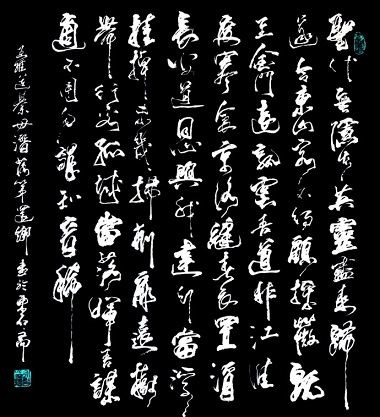 聖代無隱者英靈盡來歸
遂令東山客不得顧採薇既
至金門遠孰雲吾道非江淮
度寒食京洛縫春衣置酒
長安道同心與我違行當浮
桂棹未幾拂荊扉遠樹
帶行客孤城當落暉吾謀
適不用勿謂知音稀
王維送綦毋潛落第還鄉 書於